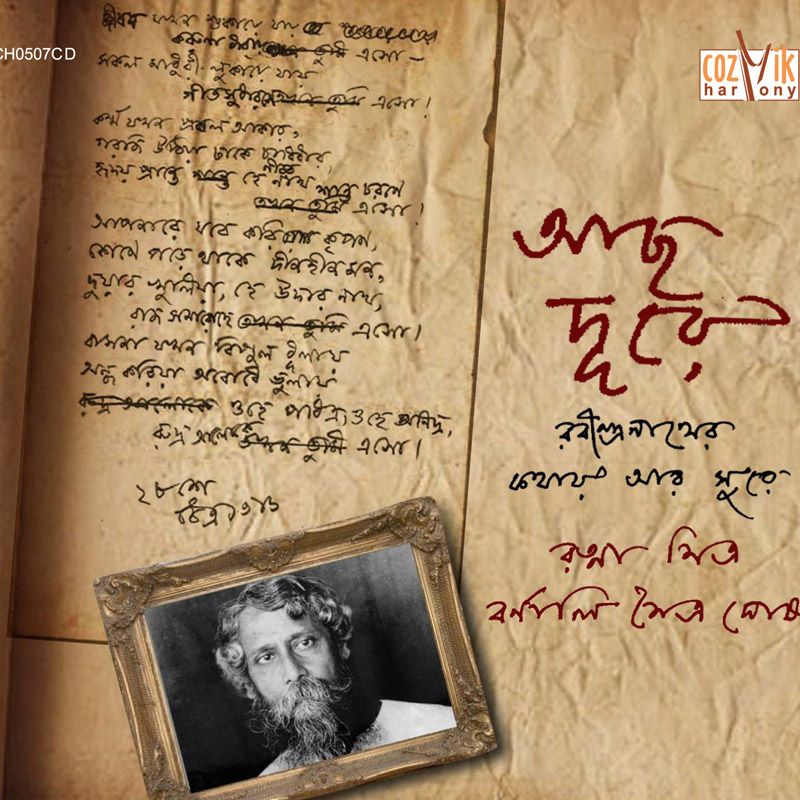 CH0507CD
COZMIK
harmony
জীবন যখন শুকায়ে যায়
করুণা ধারায় তুমি এসো –
সকল মাধুরী লুকায়ে যায়
গীতসুধারসে এসো!
কর্ম্ম যখন প্রবল আকার,
গরজি উঠিয়া ঢাকে চারিধার,
হৃদয় প্রান্তে হে নীরব নাথ শান্ত চরণে
এসো!
আপনারে যবে করিয়া কৃপণ,
কোণে পড়ে থাকে দীনহীন মন,
দুয়ার খুলিয়া, হে উদার নাথ,
রাজ সমারোহে এসো।
বাসনা যখন বিপুল ধূলায়
অন্ধ করিয়া অবোধে ভুলায়
ওহে পবিত্র, ওহে অনিদ্র,
রুদ্র আলোকে এসো।
২৮শে
চৈত্র ১৩১৬
আছ
দূরে
রবীন্দ্রনাথের
কথায় আর সুরে
রত্না মিত্র
বর্ণালি মৈত্র ঘোষ